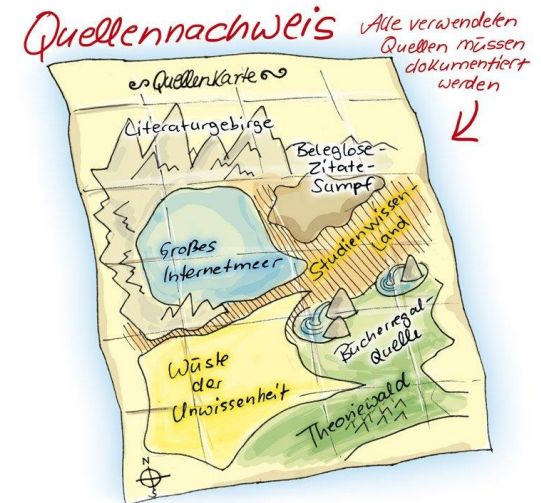 Quellennachweis
Alle verwendeten
Quellen müssen
dokumentiert
werden
Quellenkarte
Literaturgebirge
Beleglose-
Zitate-
Sumpf
Großes
Internetmeer
Studienwissen-
Land
Bücherregal-
Quelle
Wüste
der
Unwissenheit
Theoriewald
N
S